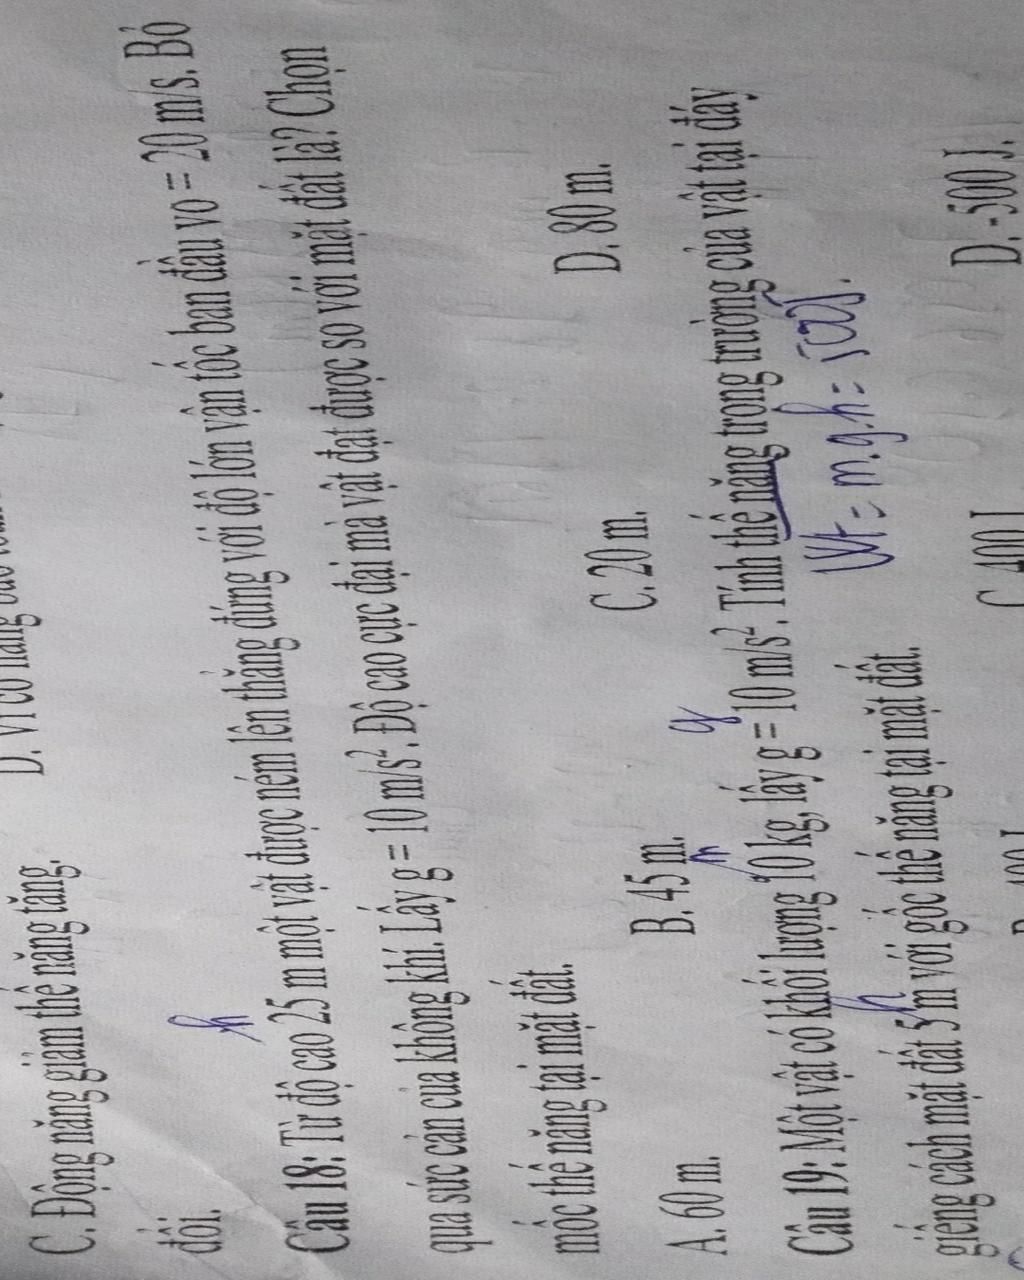 D. Vì cơ năng
C. Động năng giảm thế năng tăng.
đổi.
h
Câu 18: Từ độ cao 25 m một vật được ném lên thẳng đứng với độ lớn vận tốc ban đầu vo = 20 m/s. Bỏ
qua sức cản của không khí. Lấy g = 10 m/s². Độ cao cực đại mà vật đạt được so với mặt đất là? Chọn
mốc thế năng tại mặt đất.
A. 60 m. B. 45 m. C. 20 m. D. 80 m.
m g
Câu 19: Một vật có khối lượng 10 kg, lấy g = 10 m/s². Tính thế năng trong trường của vật tại đáy
h Wt = m.g.h = 500J.
giếng cách mặt đất 5 m với gốc thế năng tại mặt đất.
C. 400 J D. -500 J.